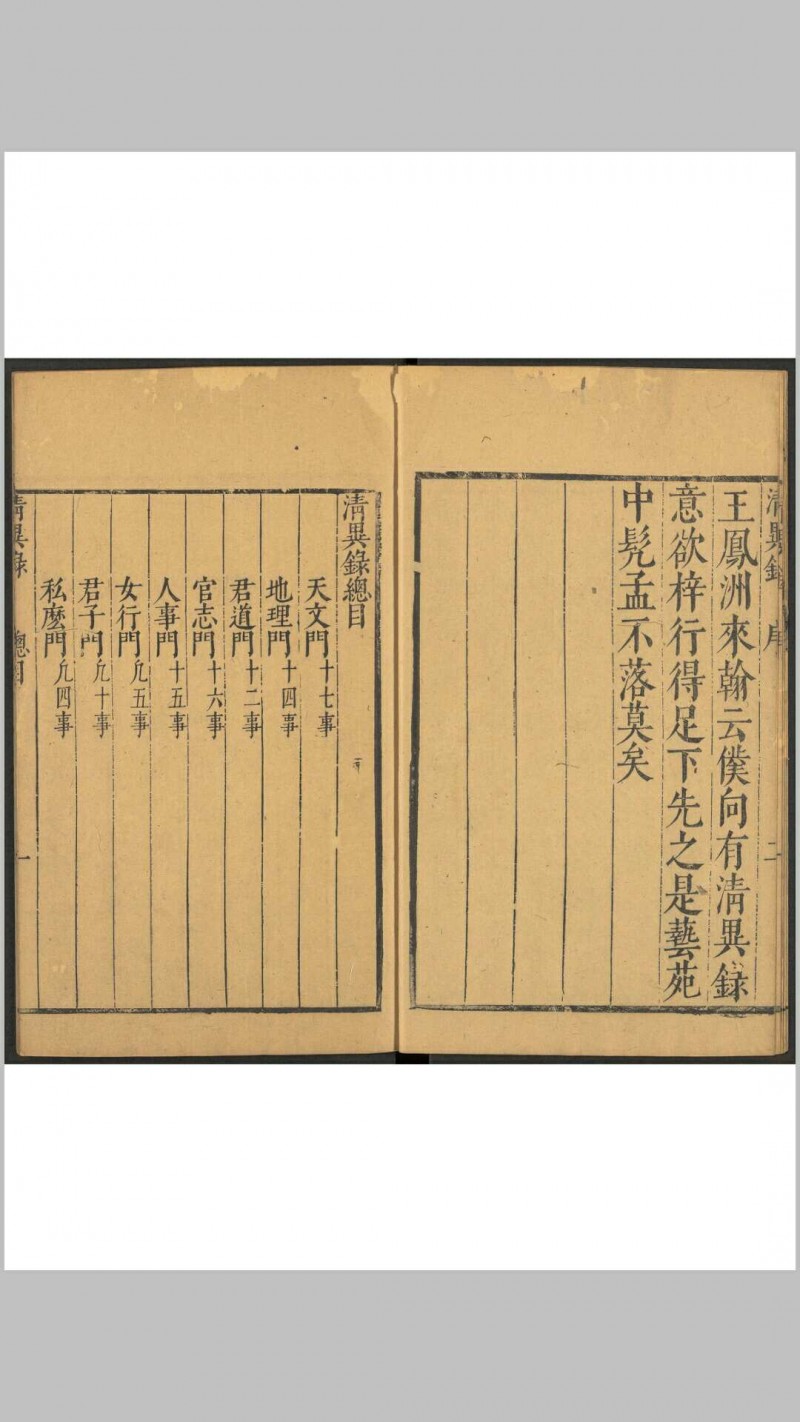 清異錄 序 二
王鳳洲來翰云僕向有清異録
意欲梓行得足下先之是藝苑
中髠孟不落莫矣
清異錄總目
天文門十七事
地理門十四事
君道門十二事
官志門十六事
人事門十五事
女行門凢五事
君子門凢十事
私麽門凢四事
清異錄 總目 一